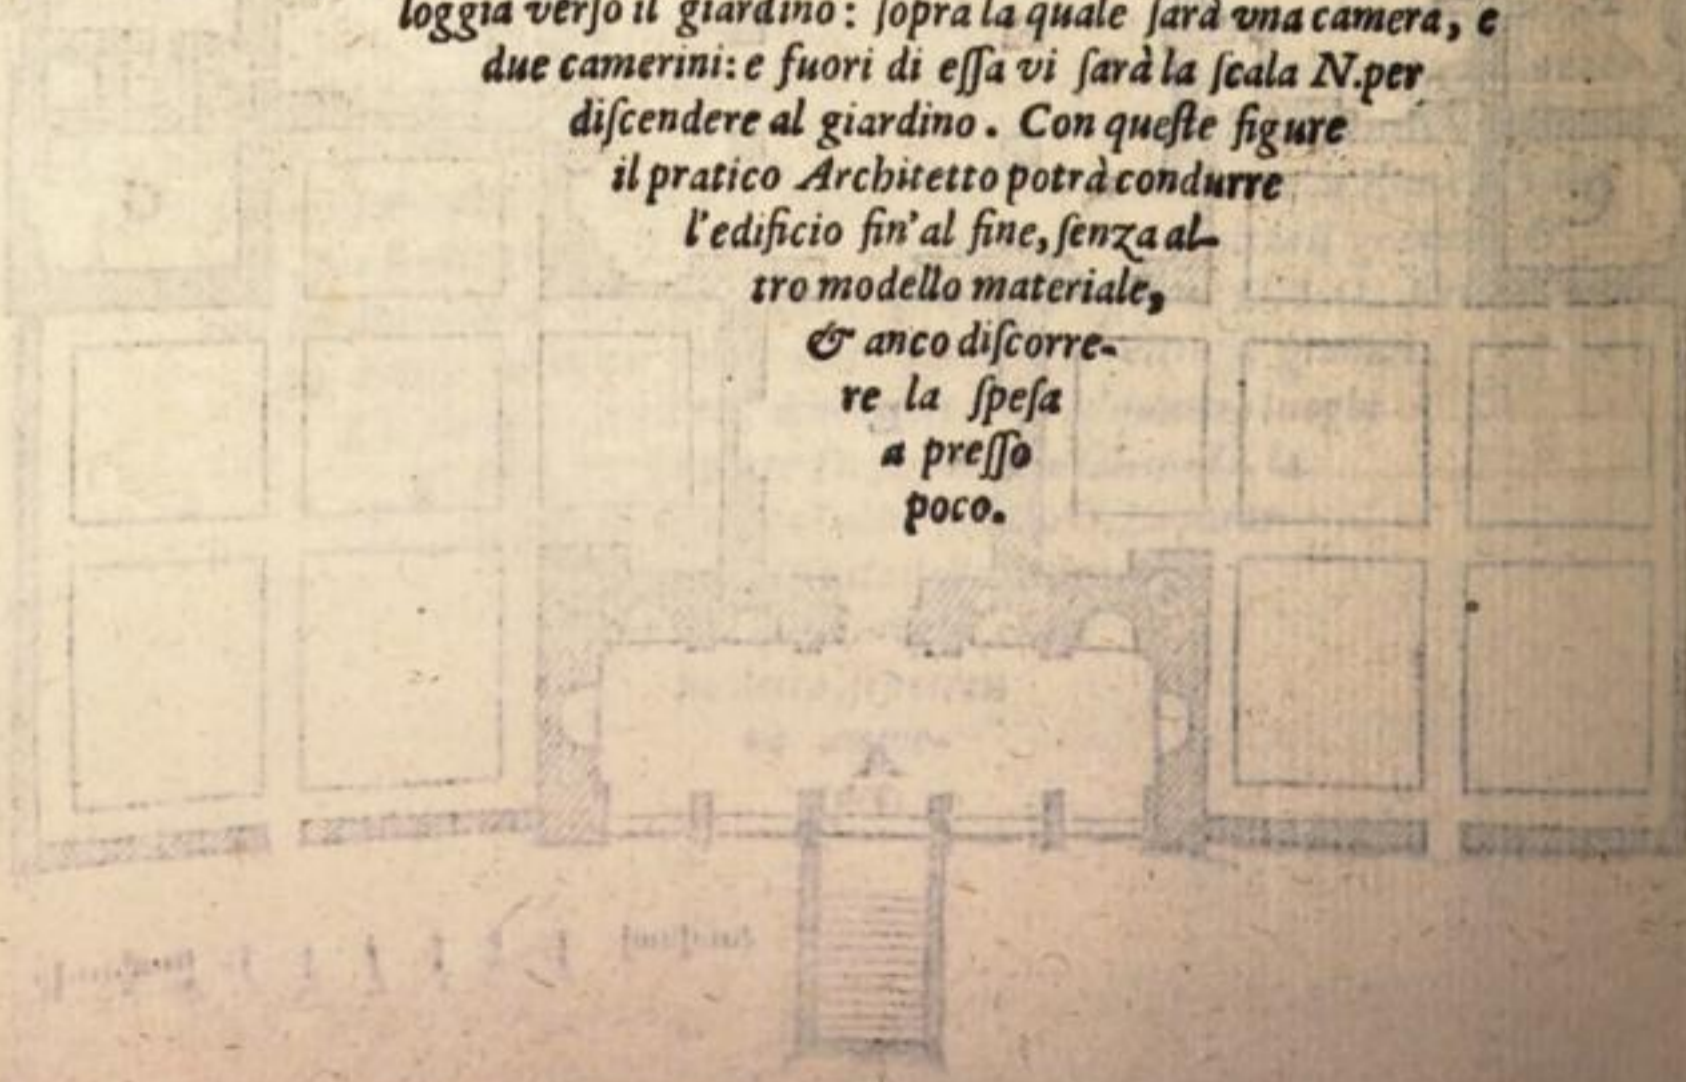 loggia verſo il giardino: ſopra la quale ſarà vna camera, e
due camerini: e fuori di eſſa vi ſarà la ſcala N. per
diſcendere al giardino. Con queſte figure
il pratico Architetto potrà condurre
l'edificio fin'al fine, ſenza al-
tro modello materiale,
& anco diſcorre-
re la ſpeſa
a preſſo
poco.